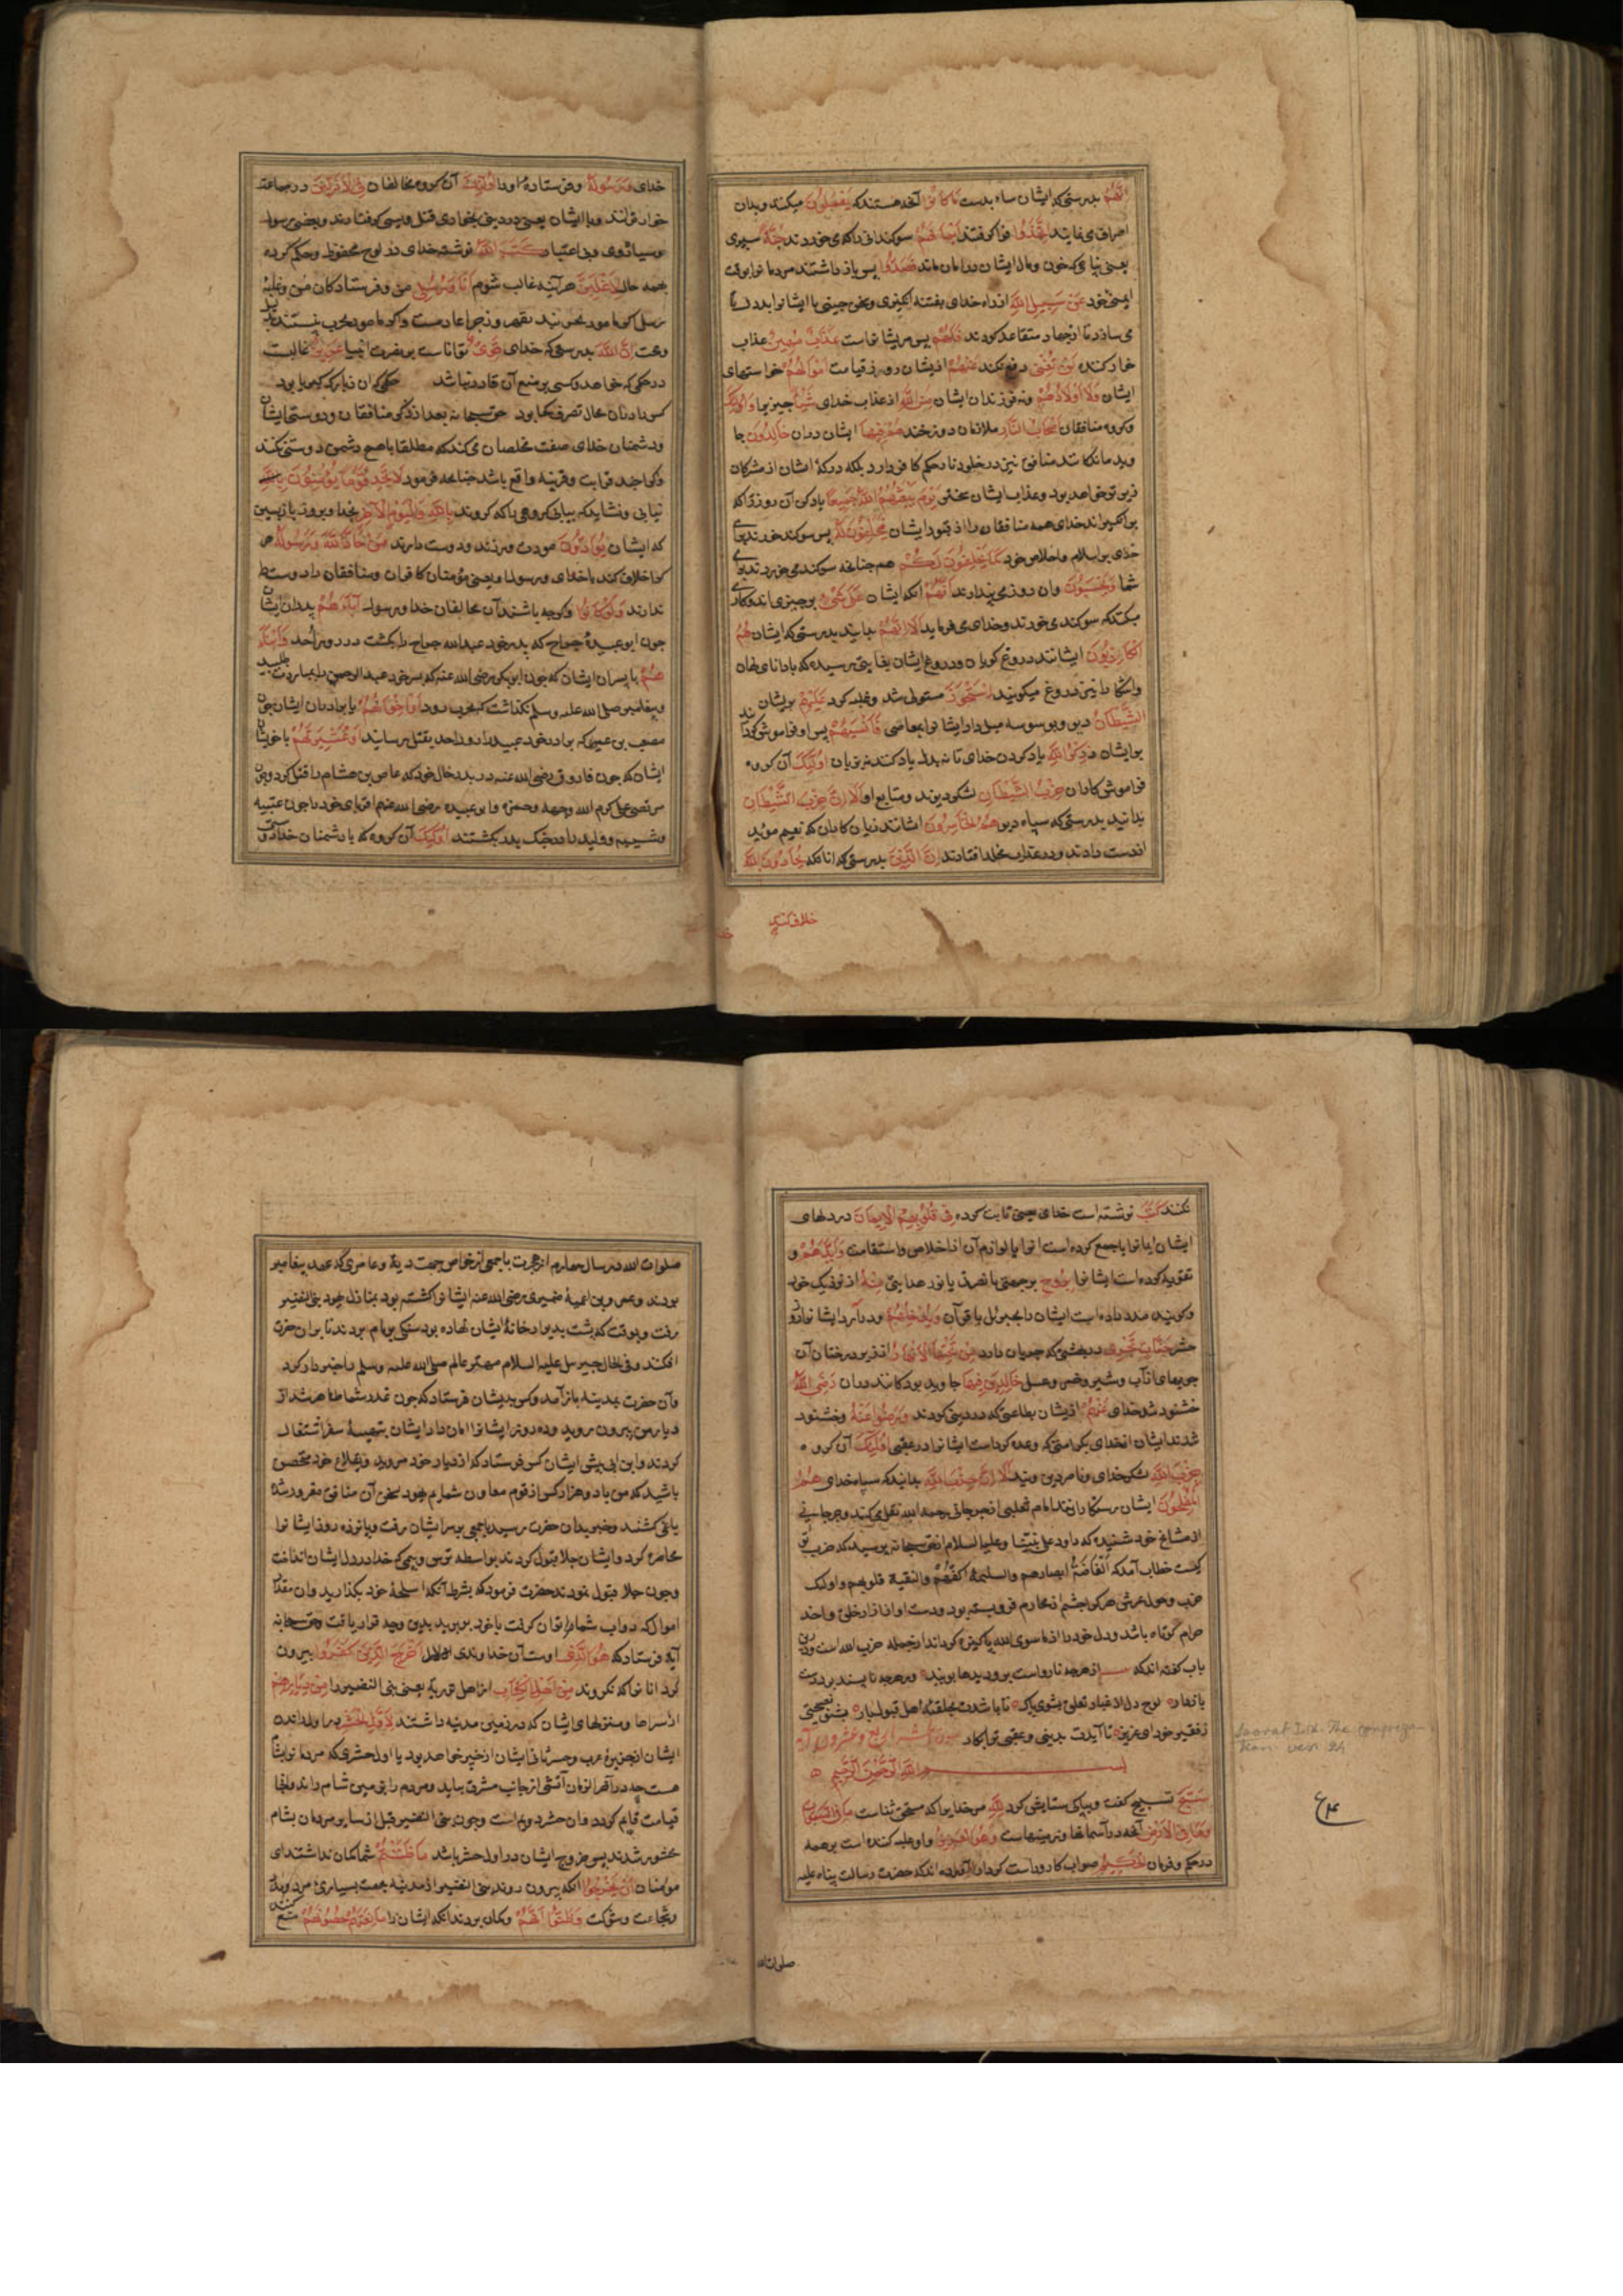 انهم بدرستی که ایشان ساء بدست ما کانوا آنچه هستند که یعملون میکنند و بدان
اصرار می نمایند اتخذوا فرا گرفتند ایمانهم سوکندانی را که می خورند جنة سپری
یعنی پناهی که خون و مال ایشان در امان ماند فصدوا پس باز داشتند مردمانرا بوقت
ایمنی خود عن سبیل الله از راه خدای بفتنه انگیزی
می سازد تا از جهاد متقاعد کردند فلهم پس مر ایشانراست عذاب مهین عذاب
خوار کننده لن تغنی دفع نکند عنهم از ایشان در روز قیامت اموالهم خواستهای
ایشان ولا اولادهم و نه فرزندان ایشان من الله از عذاب خدای شیئا چیزیرا اولئک
وکروه منافقان اصحاب النار ملازمان دوزخند هم فیها ایشان دران خالدون جا
وید مانندکانند منافق نیز در خلود نار حکم کافر دارد بلکه درکهٔ ایشان از مشرکان
زیرتر خواهد بود و عذاب ایشان سختتر یوم یبعثهم الله جمیعا یاد کن آن روز را که
برانکیزاند خدای همه منافقان را از قبور ایشان فیحلفون له پس سوکند خورند برای
خدای بر اسلام و اخلاص خود کما یحلفون لکم همچنانچه سوکند می خورند برای
شما ویحسبون وان روز می پندارند انهم آنکه ایشان علی شیء بر چیزی اند و کاری
میکنند که سوکند می خورند و خدای می فرماید الا انهم بدانید بدرستی که ایشان هم
الکاذبون ایشانند دروغ کویان و دروغ ایشان بغایتی رسیده که با دانای نهان
واشکارا نیز دروغ میکویند استحوذ مستولی شد و غلبه کرد علیهم بر ایشان
الشیطان دیو و بوسوسه میل داد ایشانرا بمعاصی فانسیهم پس او فراموش کردانید
بر ایشان ذکر الله یاد کردن خدای تا نه بدل یاد کنند نه بزبان اولئک آن کروه
فراموش کاران حزب الشیطان لشکر دیوند و متابع او الا ان حزب الشیطان
بدانید بدرستی که سپاه دیو هم الخاسرون ایشانند زیان کاران که نعیم موبد
از دست دادند و در عذاب مخلد افتادند ان الذین بدرستی که انانکه یحادون الله
خلاف کنند
خدای ورسوله و فرستادهٔ او را اولئک آن کروه مخالفان فی الاذلین در جماعت
خوارترانند و با ایشان یعنی در دنیا بخواری قتل و اسیری کرفتارند و بعقبی برسوا
وسیاه روی و بی اعتبار کتب الله نوشته خدای در لوح محفوظ و حکم کرده
بهمه حال لاغلبن هر آینه غالب شوم انا ورسلی من و فرستادکان من
وحجت ان الله بدرستی که خدای قوی توانا است بر نصرت انبیا عزیز غالبست
در حکمی که خواهد و کسی بر منع آن قادر نباشد حکمی که ان زبارکه کبریا بود
کس را دران مجال تصرف کجا بود حق سبحانه بعد از ذکر منافقان و دوستی ایشان
ودشمنان خدای صفت مخلصان می کند که مطلقا با هیچ دشمن دوستی نکنند
واکرچه قرابت و قرینه واقع باشد چنانچه فرمود لا تجد قوما یؤمنون بالله
نیابی و نشاید که بیابی کروهی را که کروند بالله والیوم الآخر بخدا و بروز بازپسین
که ایشان یوادون مودت ورزند و دوست دارند من حاد الله ورسوله هر
که خلاف کند با خدای و رسول او یعنی مؤمنان کافران و منافقان را دوست
ندارند ولو کانوا واکرچه باشند آن مخالفان خدا و رسول آباءهم پدران ایشان
چون ابو عبیدهٔ جراح که پدر خود عبدالله جراح را بکشت در روز احد او ابناء
هم یا پسران ایشان که چون ابوبکر رضی الله عنه که پسر خود عبدالرحمن را بمبارزت طلبید
وپیغامبر صلی الله علیه وسلم نکذاشت که بحرب رود او اخوانهم یا برادران ایشان چون
مصعب بن عمیر که برادر خود عبید را روز احد بقتل رسانید او عشیرتهم یا خویشان
ایشان که چون فاروق رضی الله عنه در بدر خال خود که عاص بن هشام را قتل کرد و چون
مرتضی علی کرم الله وجهه و حمزه و ابو عبیده رضی الله عنهم اقربای خود را چون عتبه
وشیبه و ولید را در جنک بدر بکشتند اولئک آن کروه که با دشمنان خدا دوستی
نکنند کتب نوشته است خدای یعنی ثابت کرده فی قلوبهم الایمان در دلهای
ایشان ایمانرا یا جمع کرده است انرا با لوازم آن از اخلاص و استقامت وایدهم و
تقویه کرده است ایشانرا بروح برحمتی یا نصرتی یا نور هدایتی منه از نزدیک خود
وکویند مدد داده است ایشان را بجبرئیل یا قرآن ویدخلهم و درآرد ایشانرا روز
حشر جنات تجری در بهشتی که جریان دارد من تحتها الانهار از زیر درختان آن
جویهای از آب و شیر و خمر و عسل خالدین فیها جاوید بودکانند دران رضی الله
خشنود شد خدای عنهم از ایشان بطاعتی که در دنیا کردند ورضوا عنه و خشنود
شدند ایشان از خدای بکرامتی که وعده کرده است ایشانرا در عقبی اولئک آن کروه
حزب الله لشکر خدای و ناصر دین ویند الا ان حزب الله بدانید که سپاه خدای هم
المفلحون ایشان رستکارانند امام ثعلبی از جرجانی رحمه الله نقل می کند و جرجانی
از مشایخ خود شنیده که داود علی نبینا وعلیه السلام از حق سبحانه پرسید که حزب تو
کیست خطاب آمد که الغاضة ابصارهم والسلیمة اکفهم والنقیة قلوبهم اولئک
حزبی وحول عرشی هر کرا چشم از محارم فروبسته بود و دست او از آزار خلق و اخذ
حرام کوتاه باشد و دل خود را از ما سوی الله پاکیزه کرداند از جمله حزب الله است و درین
باب کفته اند که از هر چه نارواست برو دیدها ببند و هر چه ناپسند بردست
بازدار لوح دل از غبار تعلق بشوی پاک تا باشدت بحلقهٔ اهل قبول بار بشنو نصیحتی
ز فقیر خود ای عزیز تا آیدت بدنیی و عقبی ترا بکار سورة الحشر اربع وعشرون آیة
بسم الله الرحمن الرحیم
سبح تسبیح کفت و بپاکی ستایش کرد لله مر خدایرا که مستحق ثناست ما فی السموات
وما فی الارض آنچه در آسمانها و زمینهاست وهو العزیز و او غلبه کننده است بر همه
در حکم و فرمان الحکیم صواب کار و راست کردار آورده اند که حضرت رسالت پناه علیه
Soorat 59. The congrega-
tion. vers. 24
صلوات الله
صلوات الله در سال چهارم از هجرت با جمعی از خواص بجهت دیهٔ دو عامری که عهد پیغامبر
بودند و عمرو بن امیهٔ ضمیری رضی الله عنه ایشانرا کشته بود بمنازل یهود بنی النضیر
رفت و بوقت که پشت بدیوار خانهٔ ایشان نهاده بود سنکی بر بام بردند تا بران حضرت
افکنند و فی الحال جبرئیل علیه السلام مهتر عالم صلی الله علیه وسلم را خبردار کرد
وآن حضرت بمدینه بازآمد و کس بدیشان فرستاد که چون غدر شما ظاهر شد از
دیار من بیرون روید و ده روز ایشانرا امان داد ایشان بتهیهٔ سفر اشتغال
کردند و ابن ابی پیش ایشان کس فرستاد که از دیار خود مروید و بقلاع خود متحصن
باشید که من با دو هزار کس از قوم معاون شما ام یهود بسخن آن منافق مغرور شده
یاغی کشتند و خبر بدان حضرت رسید با جمعی بر سر ایشان رفت و پانزده روز ایشانرا
محاصره کرد و ایشان جلا قبول کردند بواسطه ترس و بیمی که خدا در دل ایشان انداخت
وچون جلا قبول نمودند حضرت فرمود که بشرط آنکه اسلحهٔ خود بکذارید وان مقدار
اموال که دواب شما برتوان کرفت با خود ببرید بدین وجه قرار یافت و حق سبحانه
آیه فرستاد که هو الذی اوست آن خداوندی اخرج الذین کفروا بیرون
کرد انانرا که نکرویدند من اهل الکتاب از اهل توریة یعنی بنی النضیر را من دیارهم
از سراها و منزلهای ایشان که در زمین مدینه داشتند لاول الحشر در اول راندن
ایشان از جزیرهٔ عرب و حشر ثانی ایشان از خیبر خواهد بود یا اول حشری که مردمانرا
هست چه در آخر الزمان آتشی از جانب مشرق بیاید و مردم را بزمین شام راند و انجا
قیامت قایم کردد وان حشر دوم است و چون بنی النضیر قبل از سایر مردمان بشام
محشور شدند پس خروج ایشان در اول حشر باشد ما ظننتم شما کمان نداشتید ای
مؤمنان ان یخرجوا انکه بیرون روند بنی النضیر از مدینه بجهت بسیاری مردم
وشجاعت و شوکت وظنوا انهم وکمان بردند انکه ایشان را مانعتهم حصونهم منع کنند